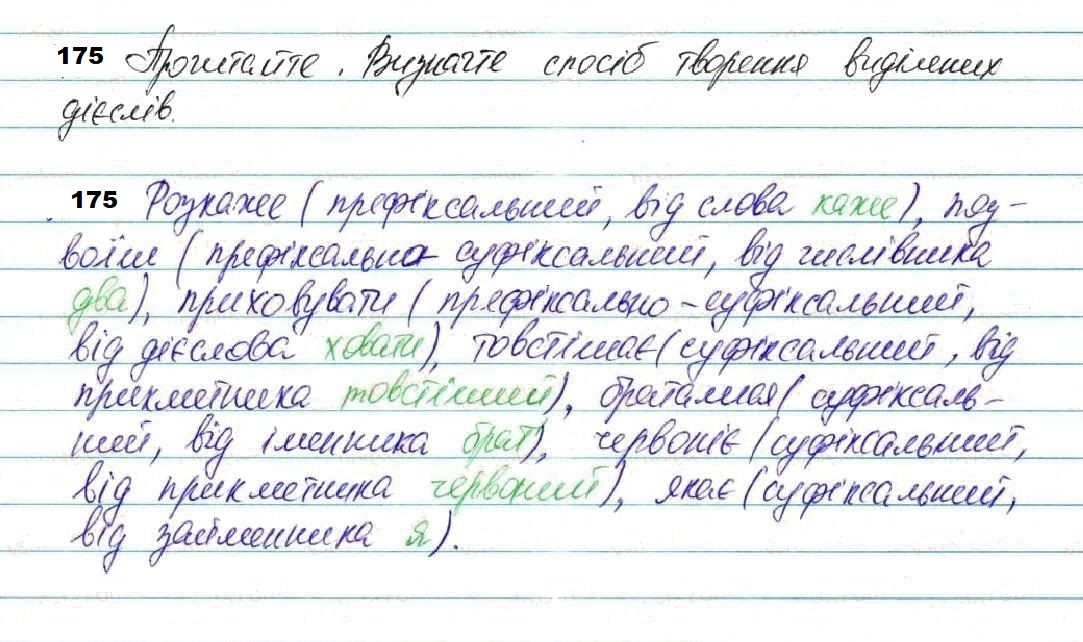 175 Прочитайте. Визначте спосіб творення виділених
дієслів.
175 Розкаже (префіксальний, від слова каже), под-
воїш (префіксально-суфіксальний, від числівника
два), приховувати (префіксально-суфіксальний,
від дієслова ховати), товстішає (суфіксальний, від
прикметника товстіший), браталися (суфіксаль-
ний, від іменника брат), червоніє (суфіксальний,
від прикметника червоний), якає (суфіксальний,
від займенника я).